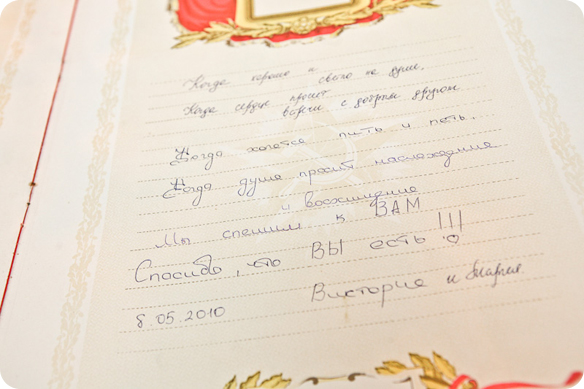 Когда хорошо и свело на душе,
Когда сердце просит
встречи с добрым другом
Когда хочется пить и петь,
Когда душа просит наслаждения
и восхищения
Мы спешим к ВАМ
Спасибо, что ВЫ есть!!!
8.05.2010 Виктория и Мария.